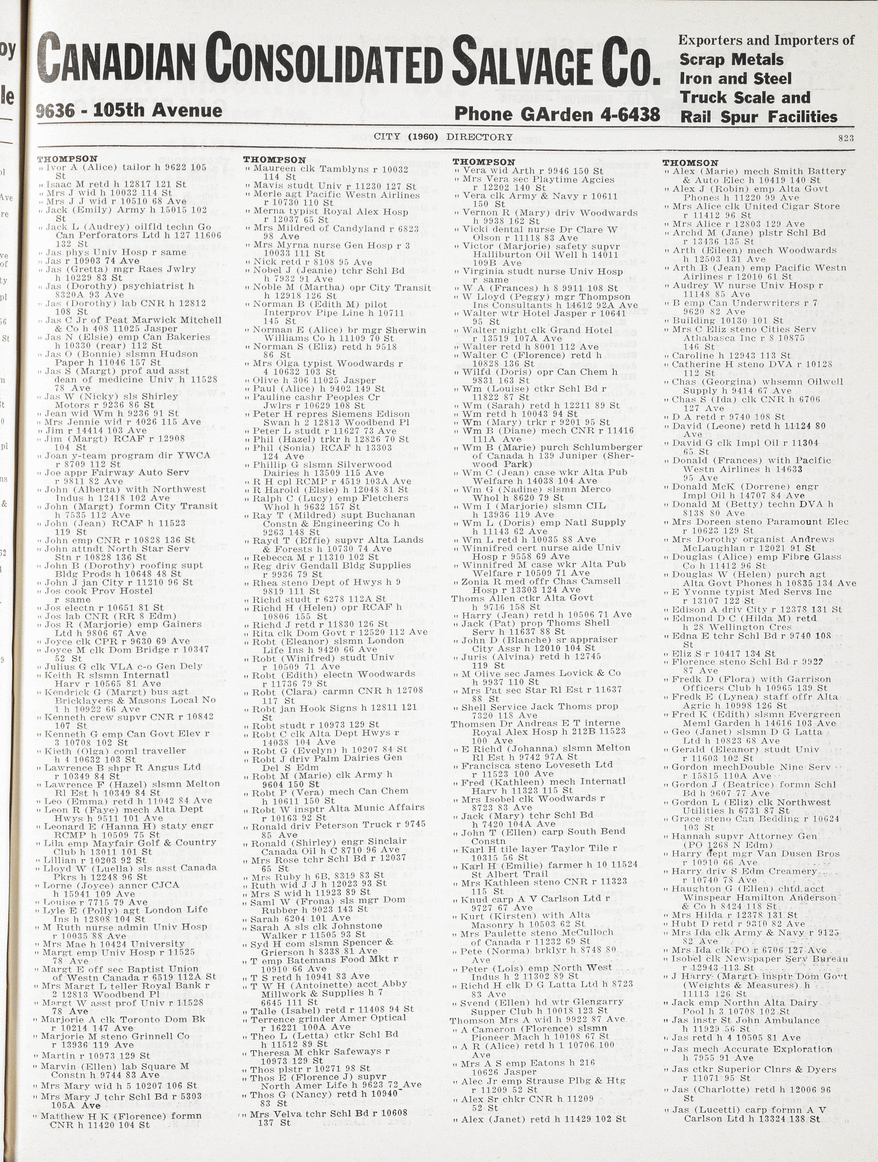 CANADIAN CONSOLIDATED SALVAGE CO.
9636 - 105th Avenue
Phone GArden 4-6438
Exporters and Importers of
Scrap Metals
Iron and Steel
Truck Scale and
Rail Spur Facilities
CITY (1960) DIRECTORY
823
THOMPSON
" Ivor A (Alice) tailor h 9622 105
St
" Isaac M retd h 12817 121 St
" Mrs J wid h 10032 114 St
" Mrs J J wid r 10510 68 Ave
" Jack (Emily) Army h 15015 102
St
" Jack L (Audrey) oilfld techn Go
Can Perforators Ltd h 127 11606
132 St
" Jas phys Univ Hosp r same
" Jas r 10903 74 Ave
" Jas (Gretta) mgr Raes Jwlry
h 10229 83 St
" Jas (Dorothy) psychiatrist h
8320A 93 Ave
" Jas (Dorothy) lab CNR h 12812
108 St
" Jas C Jr of Peat Marwick Mitchell
& Co h 408 11025 Jasper
" Jas N (Elsie) emp Can Bakeries
h 10330 (rear) 112 St
" Jas O (Bonnie) slsmn Hudson
Paper h 11046 157 St
" Jas S (Margt) prof aud asst
dean of medicine Univ h 11528
78 Ave
" Jas W (Nicky) sls Shirley
Motors r 9236 86 St
" Jean wid Wm h 9236 91 St
" Mrs Jennie wid r 4026 115 Ave
" Jim r 14414 103 Ave
" Jim (Margt) RCAF r 12908
104 St
" Joan y-team program dir YWCA
r 8709 112 St
" Joe appr Fairway Auto Serv
r 9811 82 Ave
" John (Alberta) with Northwest
Indus h 12418 102 Ave
" John (Margt) formn City Transit
h 7535 112 Ave
" John (Jean) RCAF h 11523
119 St
" John emp CNR r 10828 136 St
" John attndt North Star Serv
Stn r 10828 136 St
" John B (Dorothy) roofing supt
Bldg Prods h 10648 48 St
" John J jan City r 11210 96 St
" Jos cook Prov Hostel
r same
" Jos electn r 10651 81 St
" Jos lab CNR (RR 8 Edm)
" Jos R (Marjorie) emp Gainers
Ltd h 9806 67 Ave
" Joyce clk CPR r 9630 69 Ave
" Joyce M clk Dom Bridge r 10347
52 St
" Julius G clk VLA c-o Gen Dely
" Keith R slsmn Internatl
Harv r 10565 81 Ave
" Kendrick G (Margt) bus agt
Bricklayers & Masons Local No
1 h 10922 66 Ave
" Kenneth crew supvr CNR r 10842
107 St
" Kenneth G emp Can Govt Elev r
3 10708 102 St
" Kieth (Olga) coml traveller
h 4 10632 103 St
" Lawrence B shpr R Angus Ltd
r 10349 84 St
" Lawrence F (Hazel) slsmn Melton
Rl Est h 10349 84 St
" Leo (Emma) retd h 11042 84 Ave
" Leon R (Faye) mech Alta Dept
Hwys h 9511 101 Ave
" Leonard E (Hanna H) staty engr
RCMP h 10509 75 St
" Lila emp Mayfair Golf & Country
Club h 13011 101 St
" Lillian r 10203 92 St
" Lloyd W (Luella) sls asst Canada
Pkrs h 12248 96 St
" Lorne (Joyce) anncr CJCA
h 15941 109 Ave
" Louise r 7715 79 Ave
" Lyle E (Polly) agt London Life
Ins h 12808 104 St
" M Ruth nurse admin Univ Hosp
r 10035 88 Ave
" Mrs Mae h 10424 University
" Margt emp Univ Hosp r 11525
78 Ave
" Margt E off sec Baptist Union
of Westn Canada r 6519 112A St
" Mrs Margt L teller Royal Bank r
2 12813 Woodbend Pl
" Margt W asst prof Univ r 11528
78 Ave
" Marjorie A clk Toronto Dom Bk
r 10214 147 Ave
" Marjorie M steno Grinnell Co
r 13936 119 Ave
" Martin r 10973 129 St
" Marvin (Ellen) lab Square M
Constn h 9744 83 Ave
" Mrs Mary wid h 5 10207 106 St
" Mrs Mary J tchr Schl Bd r 5303
105A Ave
" Matthew H K (Florence) formn
CNR h 11420 104 St
THOMPSON
" Maureen clk Tamblyns r 10032
114 St
" Mavis studt Univ r 11230 127 St
" Merle agt Pacific Westn Airlines
r 10730 110 St
" Merna typist Royal Alex Hosp
r 12037 65 St
" Mrs Mildred of Candyland r 6823
98 Ave
" Mrs Myrna nurse Gen Hosp r 3
10033 111 St
" Nick retd r 8108 95 Ave
" Nobel J (Jeanie) tchr Schl Bd
h 7932 91 Ave
" Noble M (Martha) opr City Transit
h 12918 126 St
" Norman B (Edith M) pilot
Interprov Pipe Line h 10711
145 St
" Norman E (Alice) br mgr Sherwin
Williams Co h 11109 70 St
" Norman S (Eliz) retd h 9518
86 St
" Mrs Olga typist Woodwards r
4 10632 103 St
" Olive h 306 11025 Jasper
" Paul (Alice) h 9402 149 St
" Pauline cashr Peoples Cr
Jwlrs r 10629 108 St
" Peter H repres Siemens Edison
Swan h 2 12813 Woodbend Pl
" Peter L studt r 11627 73 Ave
" Phil (Hazel) trkr h 12826 70 St
" Phil (Sonia) RCAF h 13303
124 Ave
" Phillip G slsmn Silverwood
Dairies h 13509 115 Ave
" R H cpl RCMP r 4519 103A Ave
" R Harold (Elsie) h 12048 81 St
" Ralph C (Lucy) emp Fletchers
Whol h 9632 157 St
" Ray T (Mildred) supt Buchanan
Constn & Engineering Co h
9263 148 St
" Rayd T (Effie) supvr Alta Lands
& Forests h 10730 74 Ave
" Rebecca M r 11310 102 St
" Reg driv Gendall Bldg Supplies
r 9936 79 St
" Rhea steno Dept of Hwys h 9
9819 111 St
" Richd studt r 6278 112A St
" Richd H (Helen) opr RCAF h
10806 155 St
" Richd J retd r 11830 126 St
" Rita clk Dom Govt r 12520 112 Ave
" Robt (Eleanor) slsmn London
Life Ins h 9420 66 Ave
" Robt (Winifred) studt Univ
r 10509 71 Ave
" Robt (Edith) electn Woodwards
r 11736 79 St
" Robt (Clara) carmn CNR h 12708
117 St
" Robt jan Hook Signs h 12811 121
St
" Robt studt r 10973 129 St
" Robt C clk Alta Dept Hwys r
14038 104 Ave
" Robt G (Evelyn) h 10207 84 St
" Robt J driv Palm Dairies Gen
Del S Edm
" Robt M (Marie) clk Army h
9604 150 St
" Robt P (Vera) mech Can Chem
h 10611 150 St
" Robt W insptr Alta Munic Affairs
r 10163 92 St
" Ronald driv Peterson Truck r 9745
85 Ave
" Ronald (Shirley) engr Sinclair
Canada Oil h C 8710 96 Ave
" Mrs Rose tchr Schl Bd r 12037
65 St
" Mrs Ruby h 6B, 8319 83 St
" Ruth wid J J h 12023 93 St
" Mrs S wid h 11923 89 St
" Saml W (Frona) sls mgr Dom
Rubber h 9023 143 St
" Sarah 6204 101 Ave
" Sarah A sls clk Johnstone
Walker r 11505 93 St
" Syd H com slsmn Spencer &
Grierson h 8338 81 Ave
" T emp Batemans Food Mkt r
10910 66 Ave
" T S retd h 10941 83 Ave
" T W H (Antoinette) acct Abby
Millwork & Supplies h 7
6645 111 St
" Talle (Isabel) retd r 11408 94 St
" Terrence grinder Amer Optical
r 16221 100A Ave
" Theo L (Letta) ctkr Schl Bd
h 11512 89 St
" Theresa M chkr Safeways r
10973 129 St
" Thos plstr r 10271 98 St
" Thos E (Florence J) supvr
North Amer Life h 9623 72 Ave
" Thos G (Nancy) retd h 10940
83 St
" Mrs Velva tchr Schl Bd r 10608
137 St
" Vera wid Arth r 9946 150 St
" Mrs Vera sec Playtime Agcies
r 12202 140 St
" Vera clk Army & Navy r 10611
150 St
" Vernon R (Mary) driv Woodwards
h 9938 162 St
" Vicki dental nurse Dr Clare W
Olson r 11118 83 Ave
" Victor (Marjorie) safety supvr
Halliburton Oil Well h 14011
109B Ave
" Virginia studt nurse Univ Hosp
r same
" W A (Frances) h 8 9911 108 St
" W Lloyd (Peggy) mgr Thompson
Ins Consultants h 14612 92A Ave
" Walter wtr Hotel Jasper r 10641
95 St
" Walter night clk Grand Hotel
r 13519 107A Ave
" Walter retd h 8001 112 Ave
" Walter C (Florence) retd h
10828 136 St
" Wilfd (Doris) opr Can Chem h
9831 163 St
" Wm (Louise) ctkr Schl Bd r
11822 87 St
" Wm (Sarah) retd h 12211 89 St
" Wm retd h 10043 94 St
" Wm (Mary) trkr r 9201 95 St
" Wm B (Diane) mech CNR r 11416
111A Ave
" Wm B (Marie) purch Schlumberger
of Canada h 139 Juniper (Sher-
wood Park)
" Wm C (Jean) case wkr Alta Pub
Welfare h 14038 104 Ave
" Wm G (Nadine) slsmn Merco
Whol h 8620 79 St
" Wm I (Marjorie) slsmn CIL
h 13936 119 Ave
" Wm L (Doris) emp Natl Supply
h 11143 62 Ave
" Wm L retd h 10035 88 Ave
" Winnifred cert nurse aide Univ
Hosp r 9558 69 Ave
" Winnifred M case wkr Alta Pub
Welfare r 10509 71 Ave
" Zonia R med offr Chas Camsell
Hosp r 13303 124 Ave
Thoms Allen ctkr Alta Govt
h 9716 158 St
" Harry (Jean) retd h 10506 71 Ave
" Jack (Pat) prop Thoms Shell
Serv h 11637 88 St
" John D (Blanche) sr appraiser
City Assr h 12010 104 St
" Juris (Alvina) retd h 12745
119 St
" M Olive sec James Lovick & Co
h 9937 110 St
" Mrs Pat sec Star Rl Est r 11637
88 St
" Shell Service Jack Thoms prop
7320 118 Ave
Thomsen Dr Andreas E T interne
Royal Alex Hosp h 212B 11523
100 Ave
" E Richd (Johanna) slsmn Melton
Rl Est h 9742 97A St
" Francisca steno Loveseth Ltd
r 11523 100 Ave
" Fred (Kathleen) mech Internatl
Harv h 11323 115 St
" Mrs Isobel clk Woodwards r
8723 83 Ave
" Jack (Mary) tchr Schl Bd
h 7420 104A Ave
" John T (Ellen) carp South Bend
Constn
" Karl H tile layer Taylor Tile r
10315 56 St
" Karl H (Emilie) farmer h 10 11524
St Albert Trail
" Mrs Kathleen steno CNR r 11323
115 St
" Knud carp A V Carlson Ltd r
9727 67 Ave
" Kurt (Kirsten) with Alta
Masonry h 10503 62 St
" Mrs Paulette steno McCulloch
of Canada r 11232 69 St
" Pete (Norma) brklyr h 8748 80
Ave
" Peter (Lois) emp North West
Indus h 2 11302 89 St
" Richd H clk D G Latta Ltd h 8723
83 Ave
" Svend (Ellen) hd wtr Glengarry
Supper Club h 10018 123 St
Thompson Mrs A wid h 9922 87 Ave
" A Cameron (Florence) slsmn
Pioneer Mach h 10108 67 St
" A R (Alice) retd h 1 10706 100
Ave
" Mrs A S emp Eatons h 216
10626 Jasper
" Alec Jr emp Strause Plbg & Htg
r 11209 52 St
" Alex Sr chkr CNR h 11209
52 St
" Alex (Janet) retd h 11429 102 St
THOMSON
" Alex (Marie) mech Smith Battery
& Auto Elec h 10419 140 St
" Alex J (Robin) emp Alta Govt
Phones h 11220 99 Ave
" Mrs Alice clk United Cigar Store
r 11412 96 St
" Mrs Alice r 12803 129 Ave
" Archd M (Jane) plstr Schl Bd
r 13436 135 St
" Arth (Eileen) mech Woodwards
h 12503 131 Ave
" Arth B (Jean) emp Pacific Westn
Airlines r 12010 61 St
" Audrey W nurse Univ Hosp r
11148 85 Ave
" B emp Can Underwriters r 7
9620 82 Ave
" Building 10130 101 St
" Mrs C Eliz steno Cities Serv
Athabasca Inc r 8 10875
146 St
" Caroline h 12943 113 St
" Catherine H steno DVA r 10128
112 St
" Chas (Georgina) whsemn Oilwell
Supply h 9414 67 Ave
" Chas S (Ida) clk CNR h 6706
127 Ave
" D A retd r 9740 108 St
" David (Leone) retd h 11124 80
Ave
" David G clk Impl Oil r 11304
65 St
" Donald (Frances) with Pacific
Westn Airlines h 14633
95 Ave
" Donald McK (Dorrene) engr
Impl Oil h 14707 84 Ave
" Donald M (Betty) techn DVA h
8138 80 Ave
" Mrs Doreen steno Paramount Elec
r 10623 129 St
" Mrs Dorothy organist Andrews
McLaughlan r 12021 91 St
" Douglas (Alice) emp Fibre Glass
Co h 11412 96 St
" Douglas W (Helen) purch agt
Alta Govt Phones h 10835 134 Ave
" E Yvonne typist Med Servs Inc
r 13107 122 St
" Edison A driv City r 12378 131 St
" Edmond D C (Hilda M) retd
h 28 Wellington Cres
" Edna E tchr Schl Bd r 9740 108
St
" Eliz S r 10417 134 St
" Florence steno Schl Bd r 9922
87 Ave
" Fredk D (Flora) with Garrison
Officers Club h 10965 139 St
" Fredk E (Lynea) staff offr Alta
Agric h 10998 126 St
" Fred K (Edith) slsmn Evergreen
Meml Garden h 14616 103 Ave
" Geo (Janet) slsmn D G Latta
Ltd h 10823 68 Ave
" Gerald (Eleanor) studt Univ
r 11603 102 St
" Gordon mechDouble Nine Serv
r 15815 110A Ave
" Gordon J (Beatrice) formn Schl
Bd h 9607 77 Ave
" Gordon L (Eliz) clk Northwest
Utilities h 6731 87 St
" Grace steno Can Bedding r 10624
103 St
" Hannah supvr Attorney Gen
(PO 1268 N Edm)
" Harry dept mgr Van Dusen Bros
r 10910 66 Ave
" Harry driv S Edm Creamery
r 10740 78 Ave
" Haughton G (Ellen) chtd acct
Winspear Hamilton Anderson
& Co h 8424 118 St
" Mrs Hilda r 12378 131 St
" Hubt D retd r 9310 82 Ave
" Mrs Ida clk Army & Navy r 9125
82 Ave
" Mrs Ida clk PO r 6706 127 Ave
" Isobel clk Newspaper Serv Bureau
r 12943 113 St
" J Harry (Margt) insptr Dom Govt
(Weights & Measures) h
11113 126 St
" Jack emp Northn Alta Dairy
Pool h 3 10708 102 St
" Jas instr St John Ambulance
h 11929 56 St
" Jas retd h 4 10505 81 Ave
" Jas mech Accurate Exploration
h 7955 91 Ave
" Jas ctkr Superior Clnrs & Dyers
r 11071 95 St
" Jas (Charlotte) retd h 12006 96
St
" Jas (Lucetti) carp formn A V
Carlson Ltd h 13324 138 St